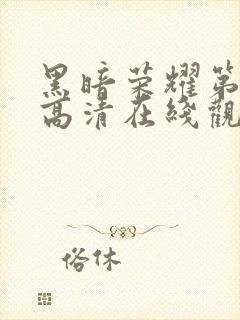 黑暗荣耀第
高清在綫觀
俗休